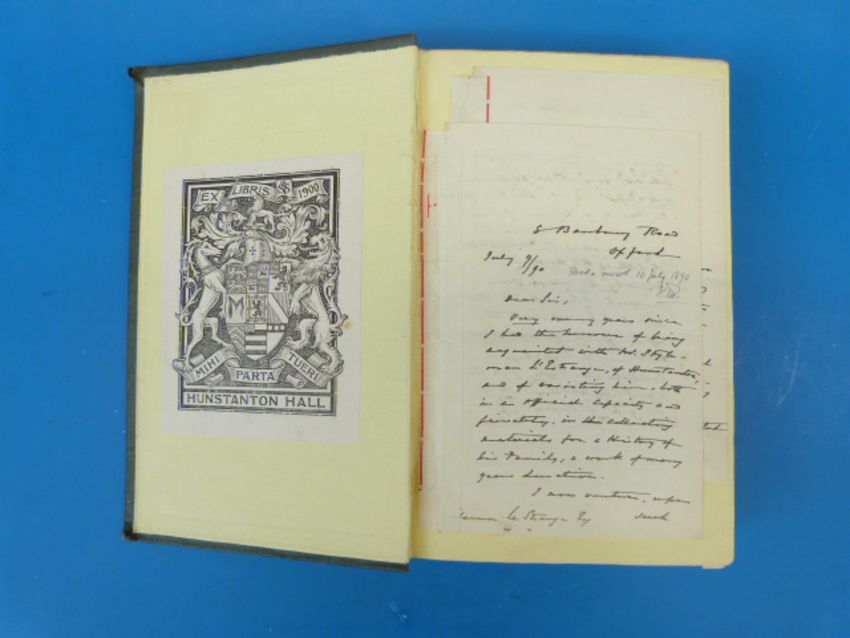 EX LIBRIS 1900
MIHI PARTA TUERI
HUNSTANTON HALL
8 Banbury Road
Oxford
July 9/90
10 July 1890
Dear Sir,
Very many years since
I had the honour of being
acquainted with Mr. Style-
man L'Estrange, of Hunstanton,
and of assisting him, both
in an official capacity and
privately, in the collecting
materials for a History of
his Family, a work of many
years duration.
I now venture, upon
Le Strange Esq
such